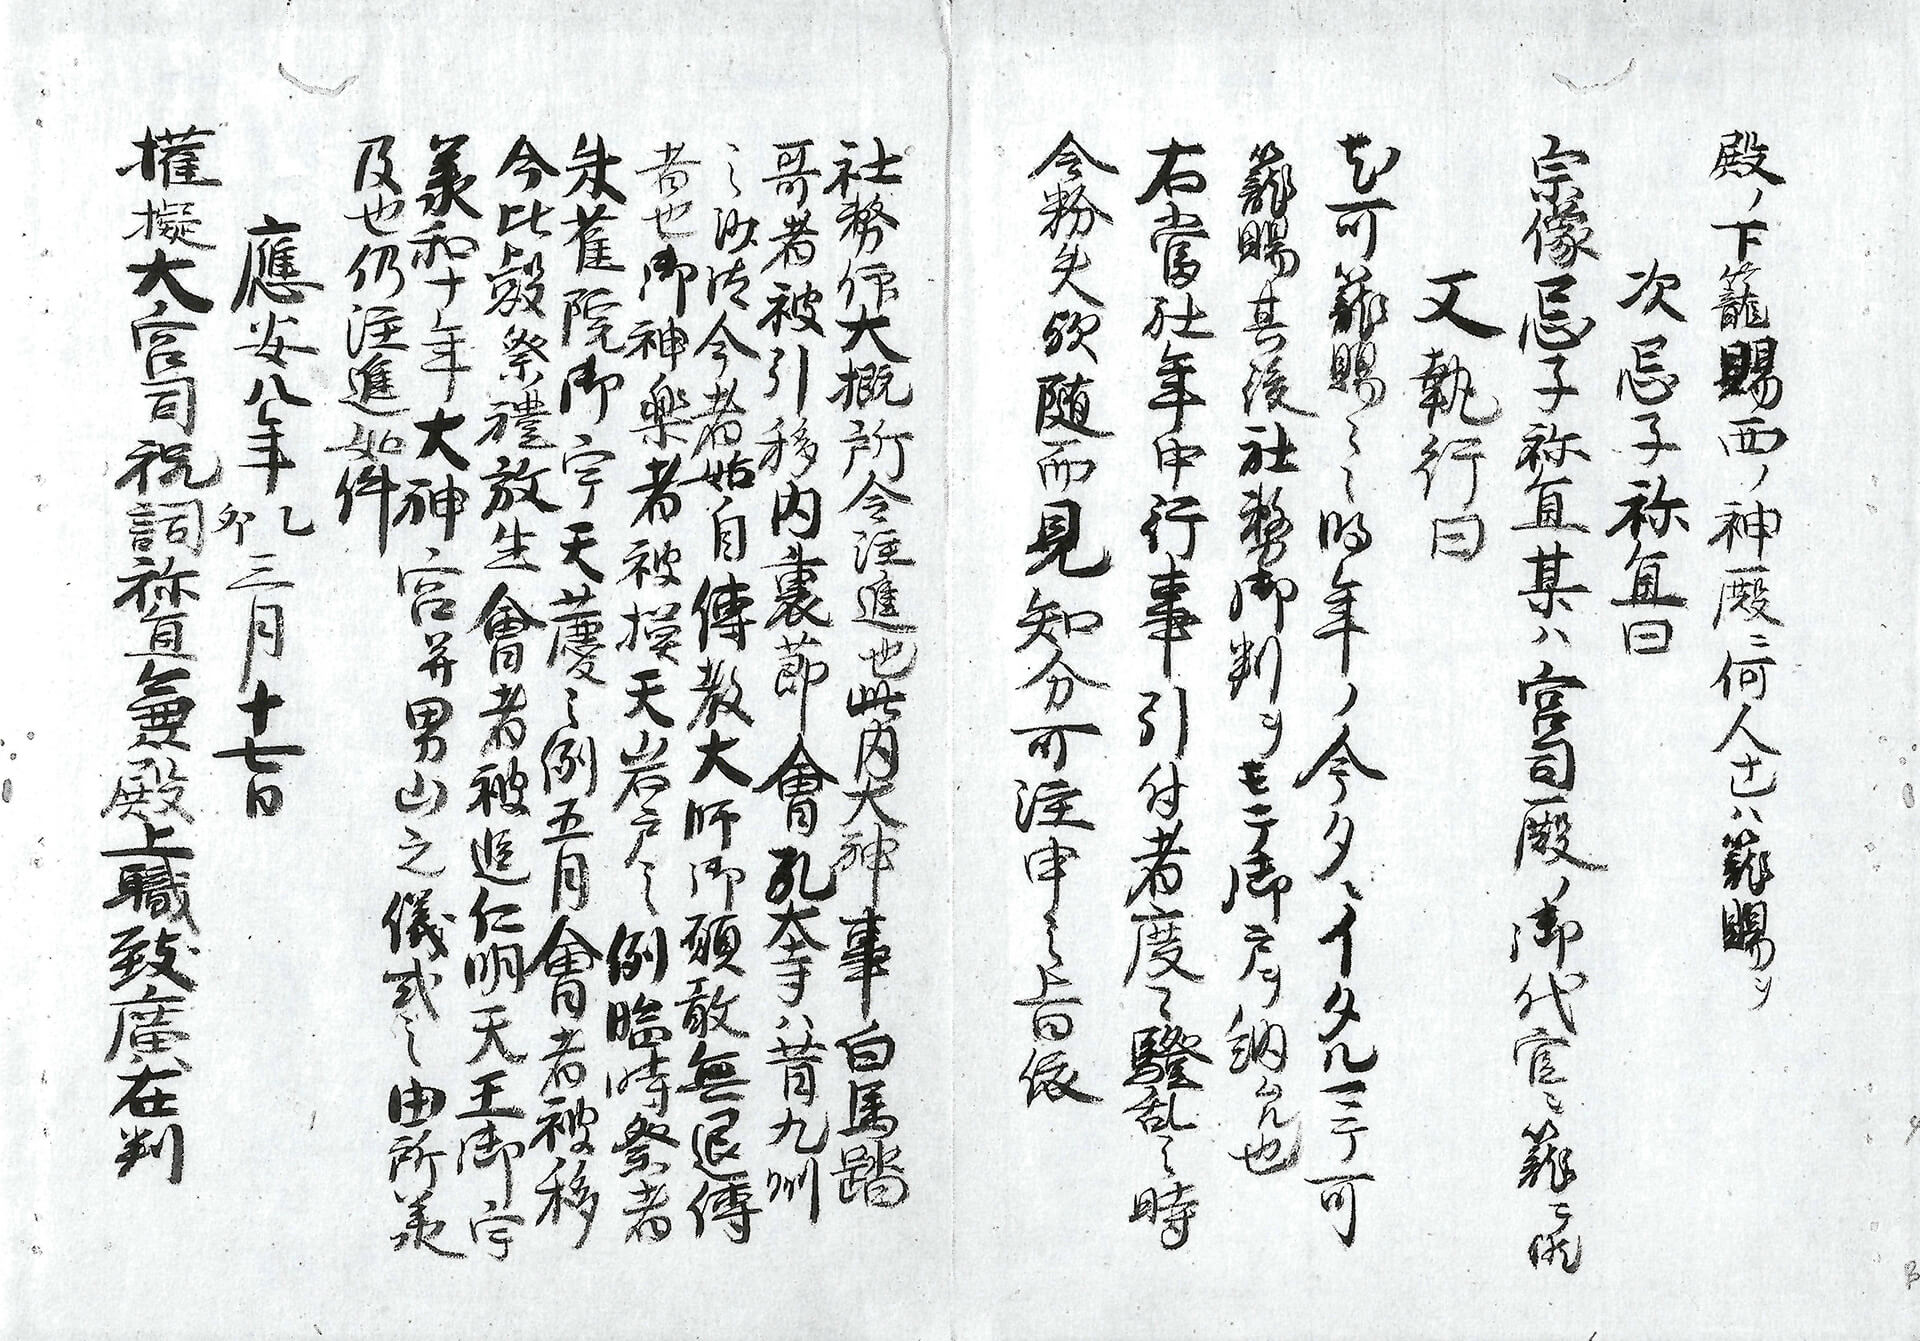 殿ノ下籠賜西ノ神殿ニ何人士ハ籠賜ソ
次忌子祢宜曰
宗像忌子祢宜某ハ宮司殿ノ御代官ニ籠ニ候
又執行曰
可籠賜之時年ノ今夕ニイタルニテ可
籠賜其後社務御判ヲモテ御戸ヲ納也
右當社年中行事引付者度々騒乱之時
令粉失欤随而見知分可注申之旨依
社務仰大概所令注進也此内大神事白馬踏
哥者被引移内裏節會孔大寺ハ昔九州
之沙法今者始自傳教大師御願敢無退傳
者也御神楽者被摸天岩戸之例臨時祭者
朱雀院御宇天慶之例五月會者被移
今比叡祭禮放生會者被追仁明天王御宇
義和十年大神宮并男山之儀式之由所義
及也仍注進如件
應安八年乙卯三月十七日
權擬大宮司祝詞祢宜兼殿上職致廣在判